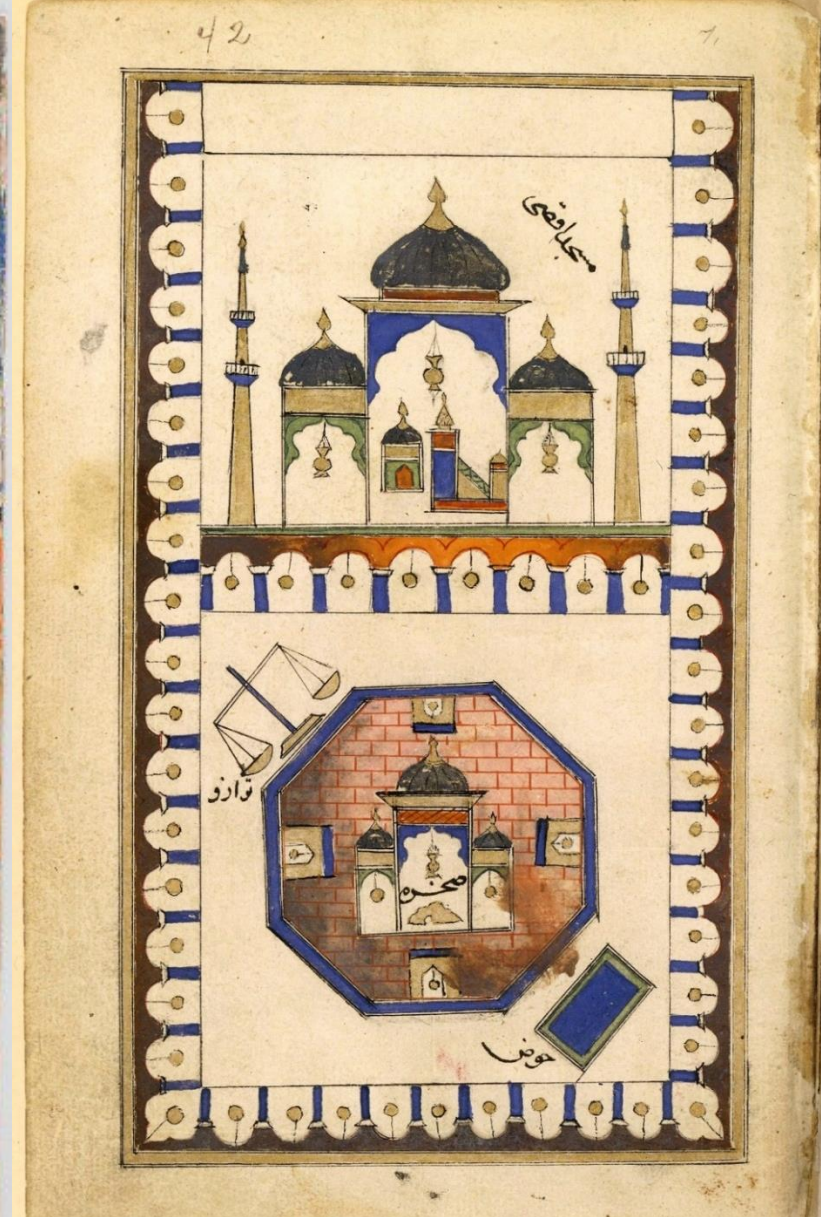 42
مسجد اقصی
ترازو
صخره
حوض